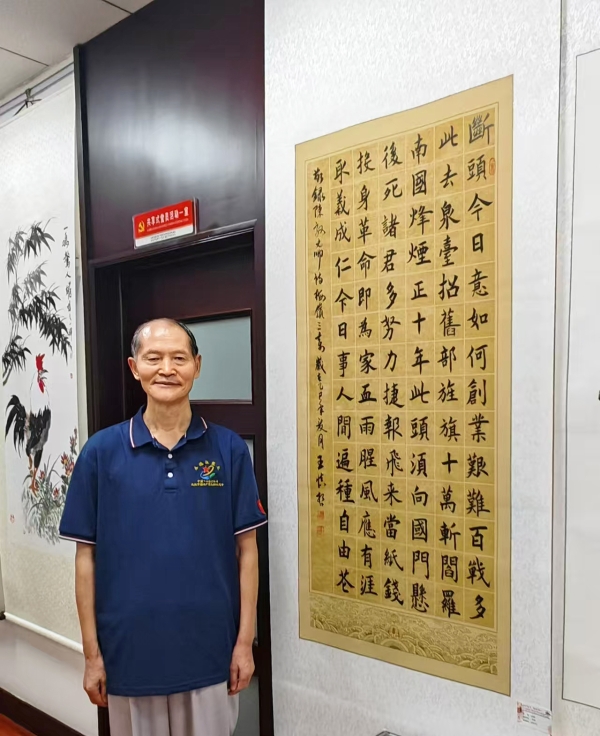 斷頭今日意如何創業艱難百戰多
此去泉臺招舊部旌旗十萬斬閻羅
南國烽煙正十年此頭須向國門懸
後死諸君多努力捷報飛来當紙錢
投身革命即為家血雨腥風應有涯
取義成仁今日事人間遍種自由花
敬錄陳毅元帥梅嶺三章歲在乙巳年